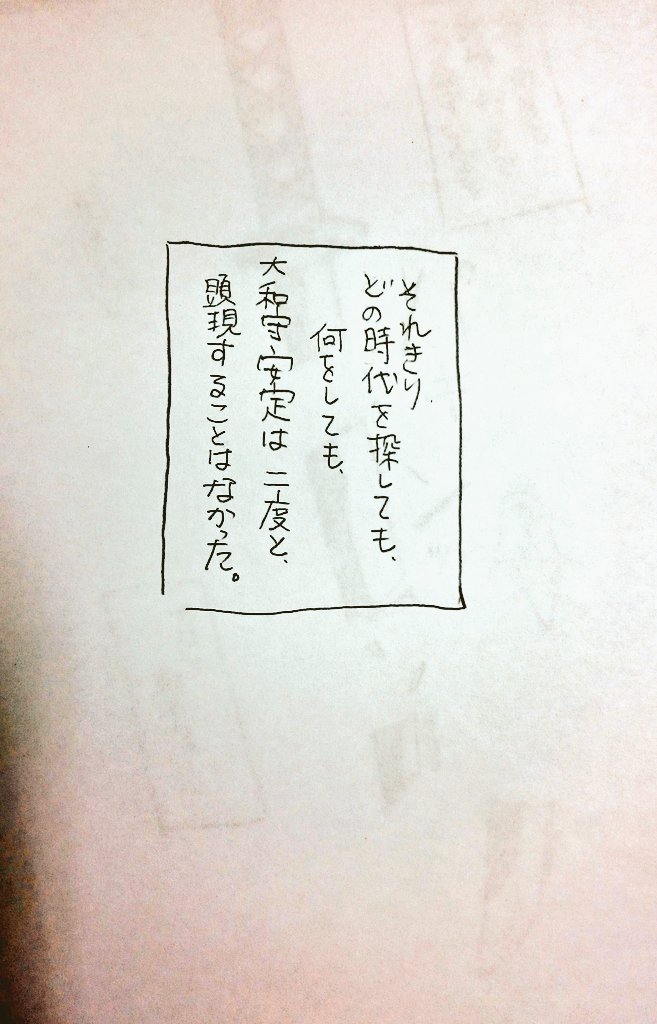 それきり
どの時代を探しても、
何をしても、
大和守安定は二度と、
顕現することはなかった。